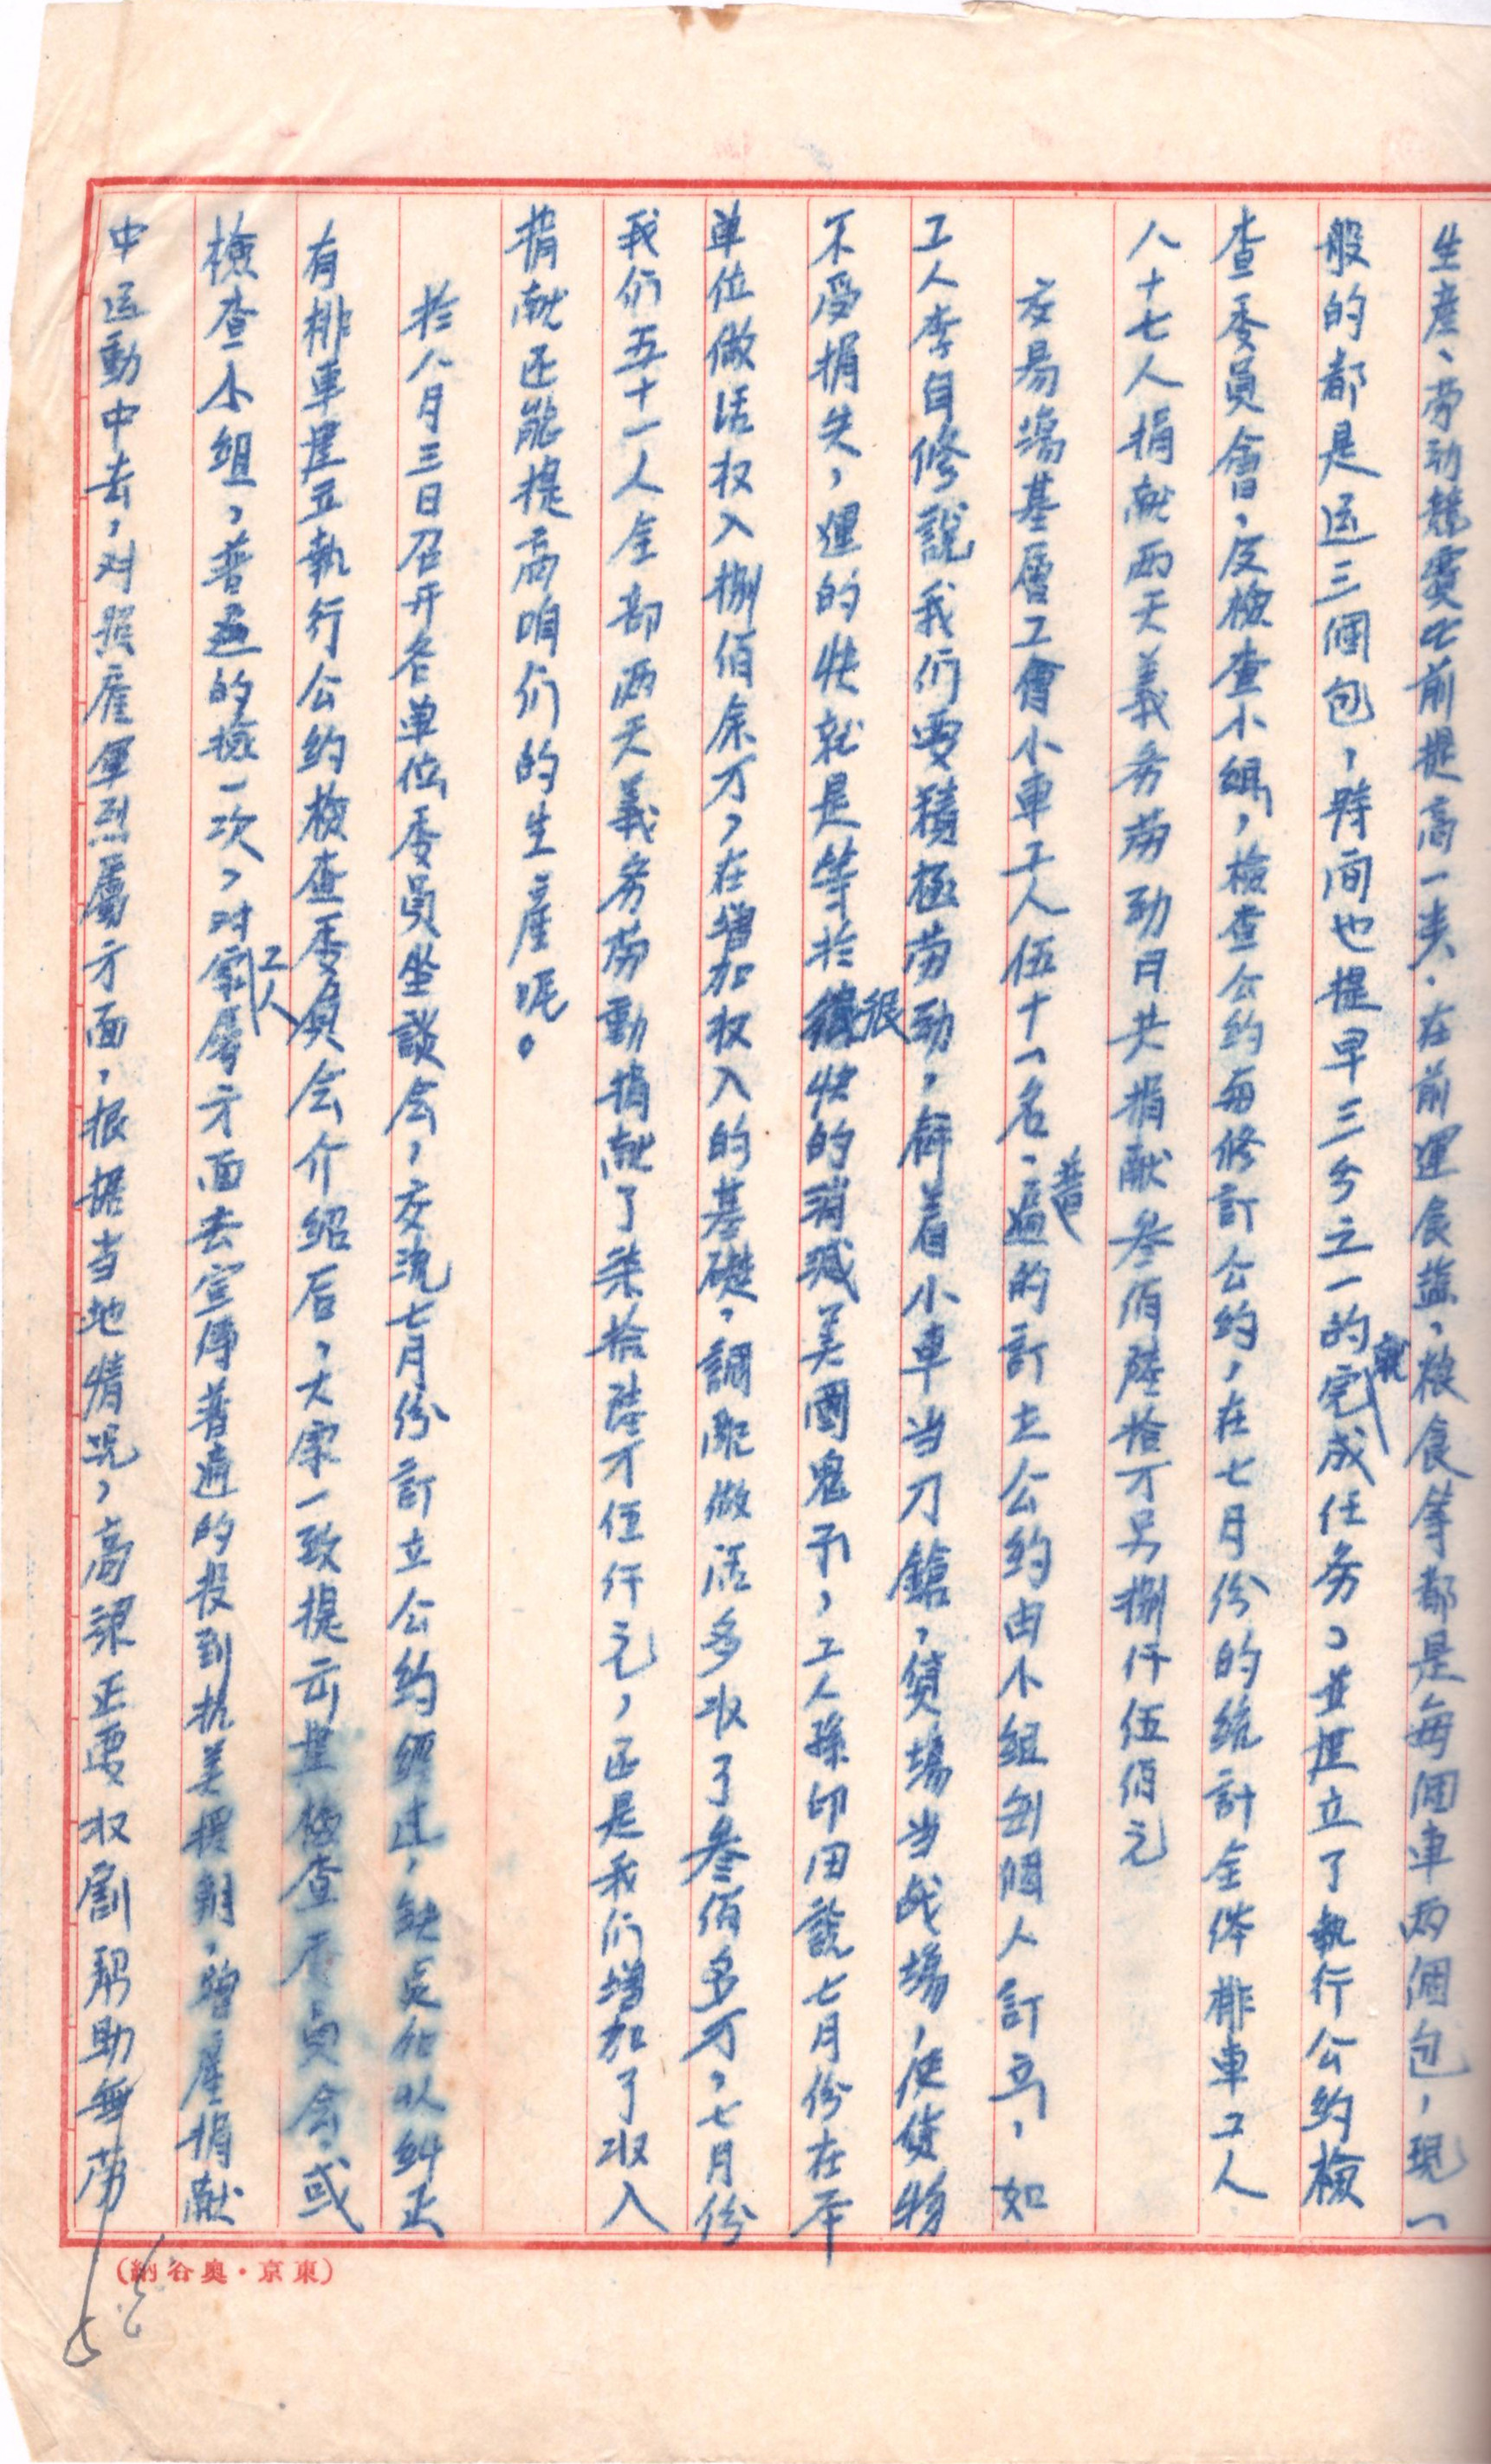 生產、劳动競賽比前提高一步.在前運食盐,粮食等都是每個車两個包,現一
般的都是运三個包,時间也提早三分之一的就完成任务,並建立了執行公約檢
查委員會,及檢查小組,檢查公约每修訂公约,在七月份的統計全体排車工人
八十七人捐献两天義务劳动月共捐献叁佰陸拾万另捌仟伍佰元
交易場基層工會小車工人伍十一名、普遍的訂立公约由小组到個人訂立,如
工人李自修說我们要積極劳动,推着小車当刀鎗,貨場当战場,使貨物
不受捐失,運的快就是等於很快的消滅美國鬼子,工人孫印田說七月份在本
单位做活收入捌佰余万,在増加收入的基礎,調配做活多收了叁佰多万,七月份
我们五十一人全部两天義务劳動捐献了柒拾陸万伍仟元,还是我们増加了收入
捐献还能提高咱们的生產呢。
於八月三日召开各单位委員坐談会,交流七月份訂立公约經过,缺点加以糾正
有排車建立執行公约檢查委員会介绍后,大家一致提出建檢查委員会或
檢查小组,普遍的檢一次,对工人家屬方面去宣傳普遍的投到抗美援朝,增產捐献
中运動中去,对照產軍烈屬方面,根据当地情况,高梁正要收割帮助無劳
(東京・奥谷納)